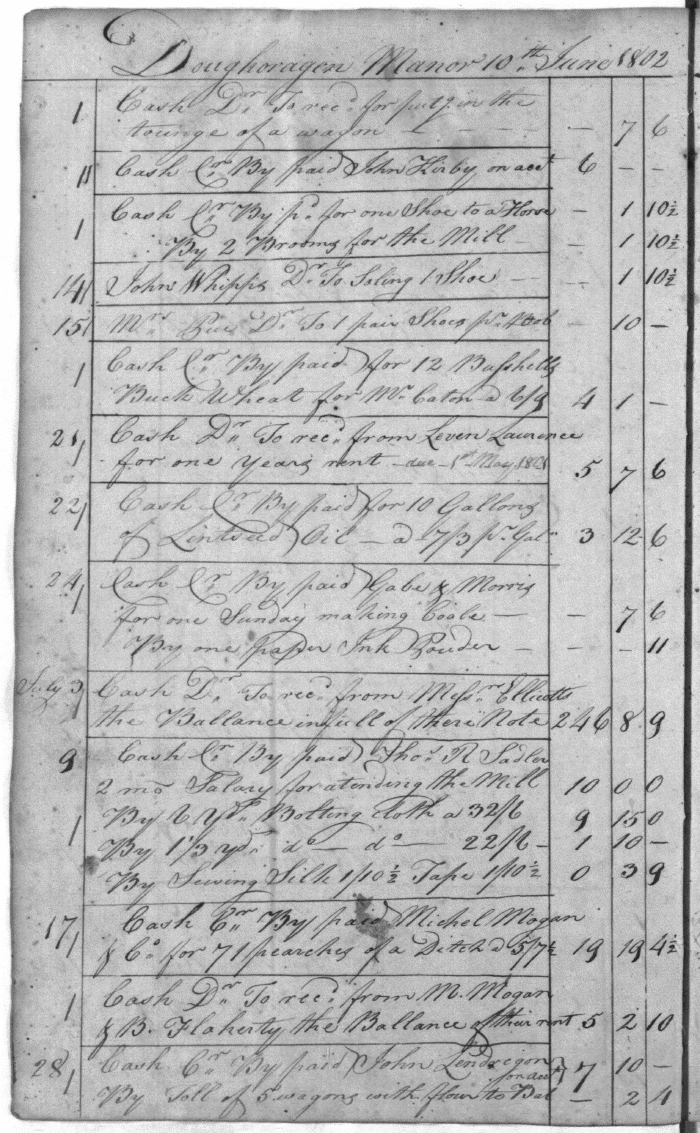 Doughoragen Manor 10th June 1802
1 Cash Dr To recd for putg in the
tounge of a wagon — 7 6
11 Cash Cr By paid John Kirby on acct 6 — —
1 Cash Cr By pd for one Shoe to a Horse — 1 10½
By 2 Brooms for the Mill — 1 10½
14 John Whipps Dr To Soling 1 Shoe — 1 10½
15 Mrs Dr To 1 pair Shoes pr — 10 —
1 Cash Cr By paid for 12 Busshells
Buck Wheat for Mr Caton a 6/9 4 1 —
21 Cash Dr To recd from Leven Laurence
for one years rent due 1st May 5 7 6
22 Cash Cr By paid for 10 Gallons
of Lintseed Oil — a 7/3 pr Galn 3 12 6
24 Cash Cr By paid Gabe & Morris
for one Sunday making Coale — — 7 6
By one paper Ink Pouder — — — 11
July 3 Cash Dr To recd from Messrs Ellicotts
the Ballance in full of there Note 246 8 9
9 Cash Cr By paid Thos R Sadler
2 mo Salary for atending the Mill 10 0 0
1 By 6 yds Bolting cloth a 32/6 9 15 0
By 1⅓ yds do — do — 22/6 — 1 10 —
By Sewing Silk 1/10½ Tape 1/10½ 0 3 9
17 Cash Cr By paid Michel Mogan
& Co for 71 pearches of a Ditch a 5/7½ 19 19 4½
1 Cash Dr To recd from M. Mogan
& B. Flaherty the Ballance of their rent 5 2 10
28 Cash Cr By paid John Lendregon
on acct 7 10 —
By Toll of 5 wagons with flour to Bal — 2 4